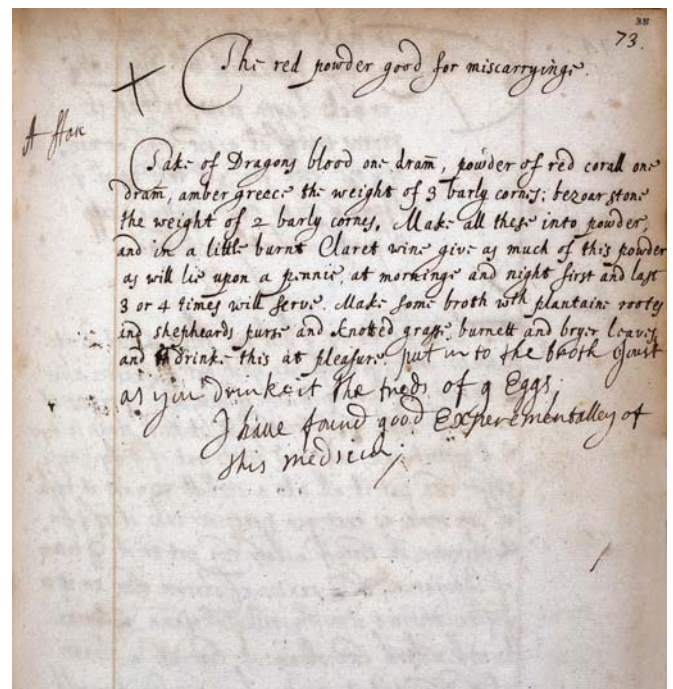 38
73.
The red powder good for miscarryinge.
Take of Dragons blood one dram̄, powder of red corall one
dram̄, amber greece the weight of 3 barly cornes; bezoar stone
the weight of 2 barly cornes. Make all these into powder,
and in a little burnt Claret wine give as much of this powder
as will lie upon a pennie, at morninge and night first and last
3 or 4 times will serve. Make some broth wth plantaine rootes
and shepheards purse and knotted grasse, burnett and bryer leaves,
and drinke this at pleasure. put in to the broth Joust
as you drinke it the treds of 9 Eggs;
I have found good Experementalley of
this medsein